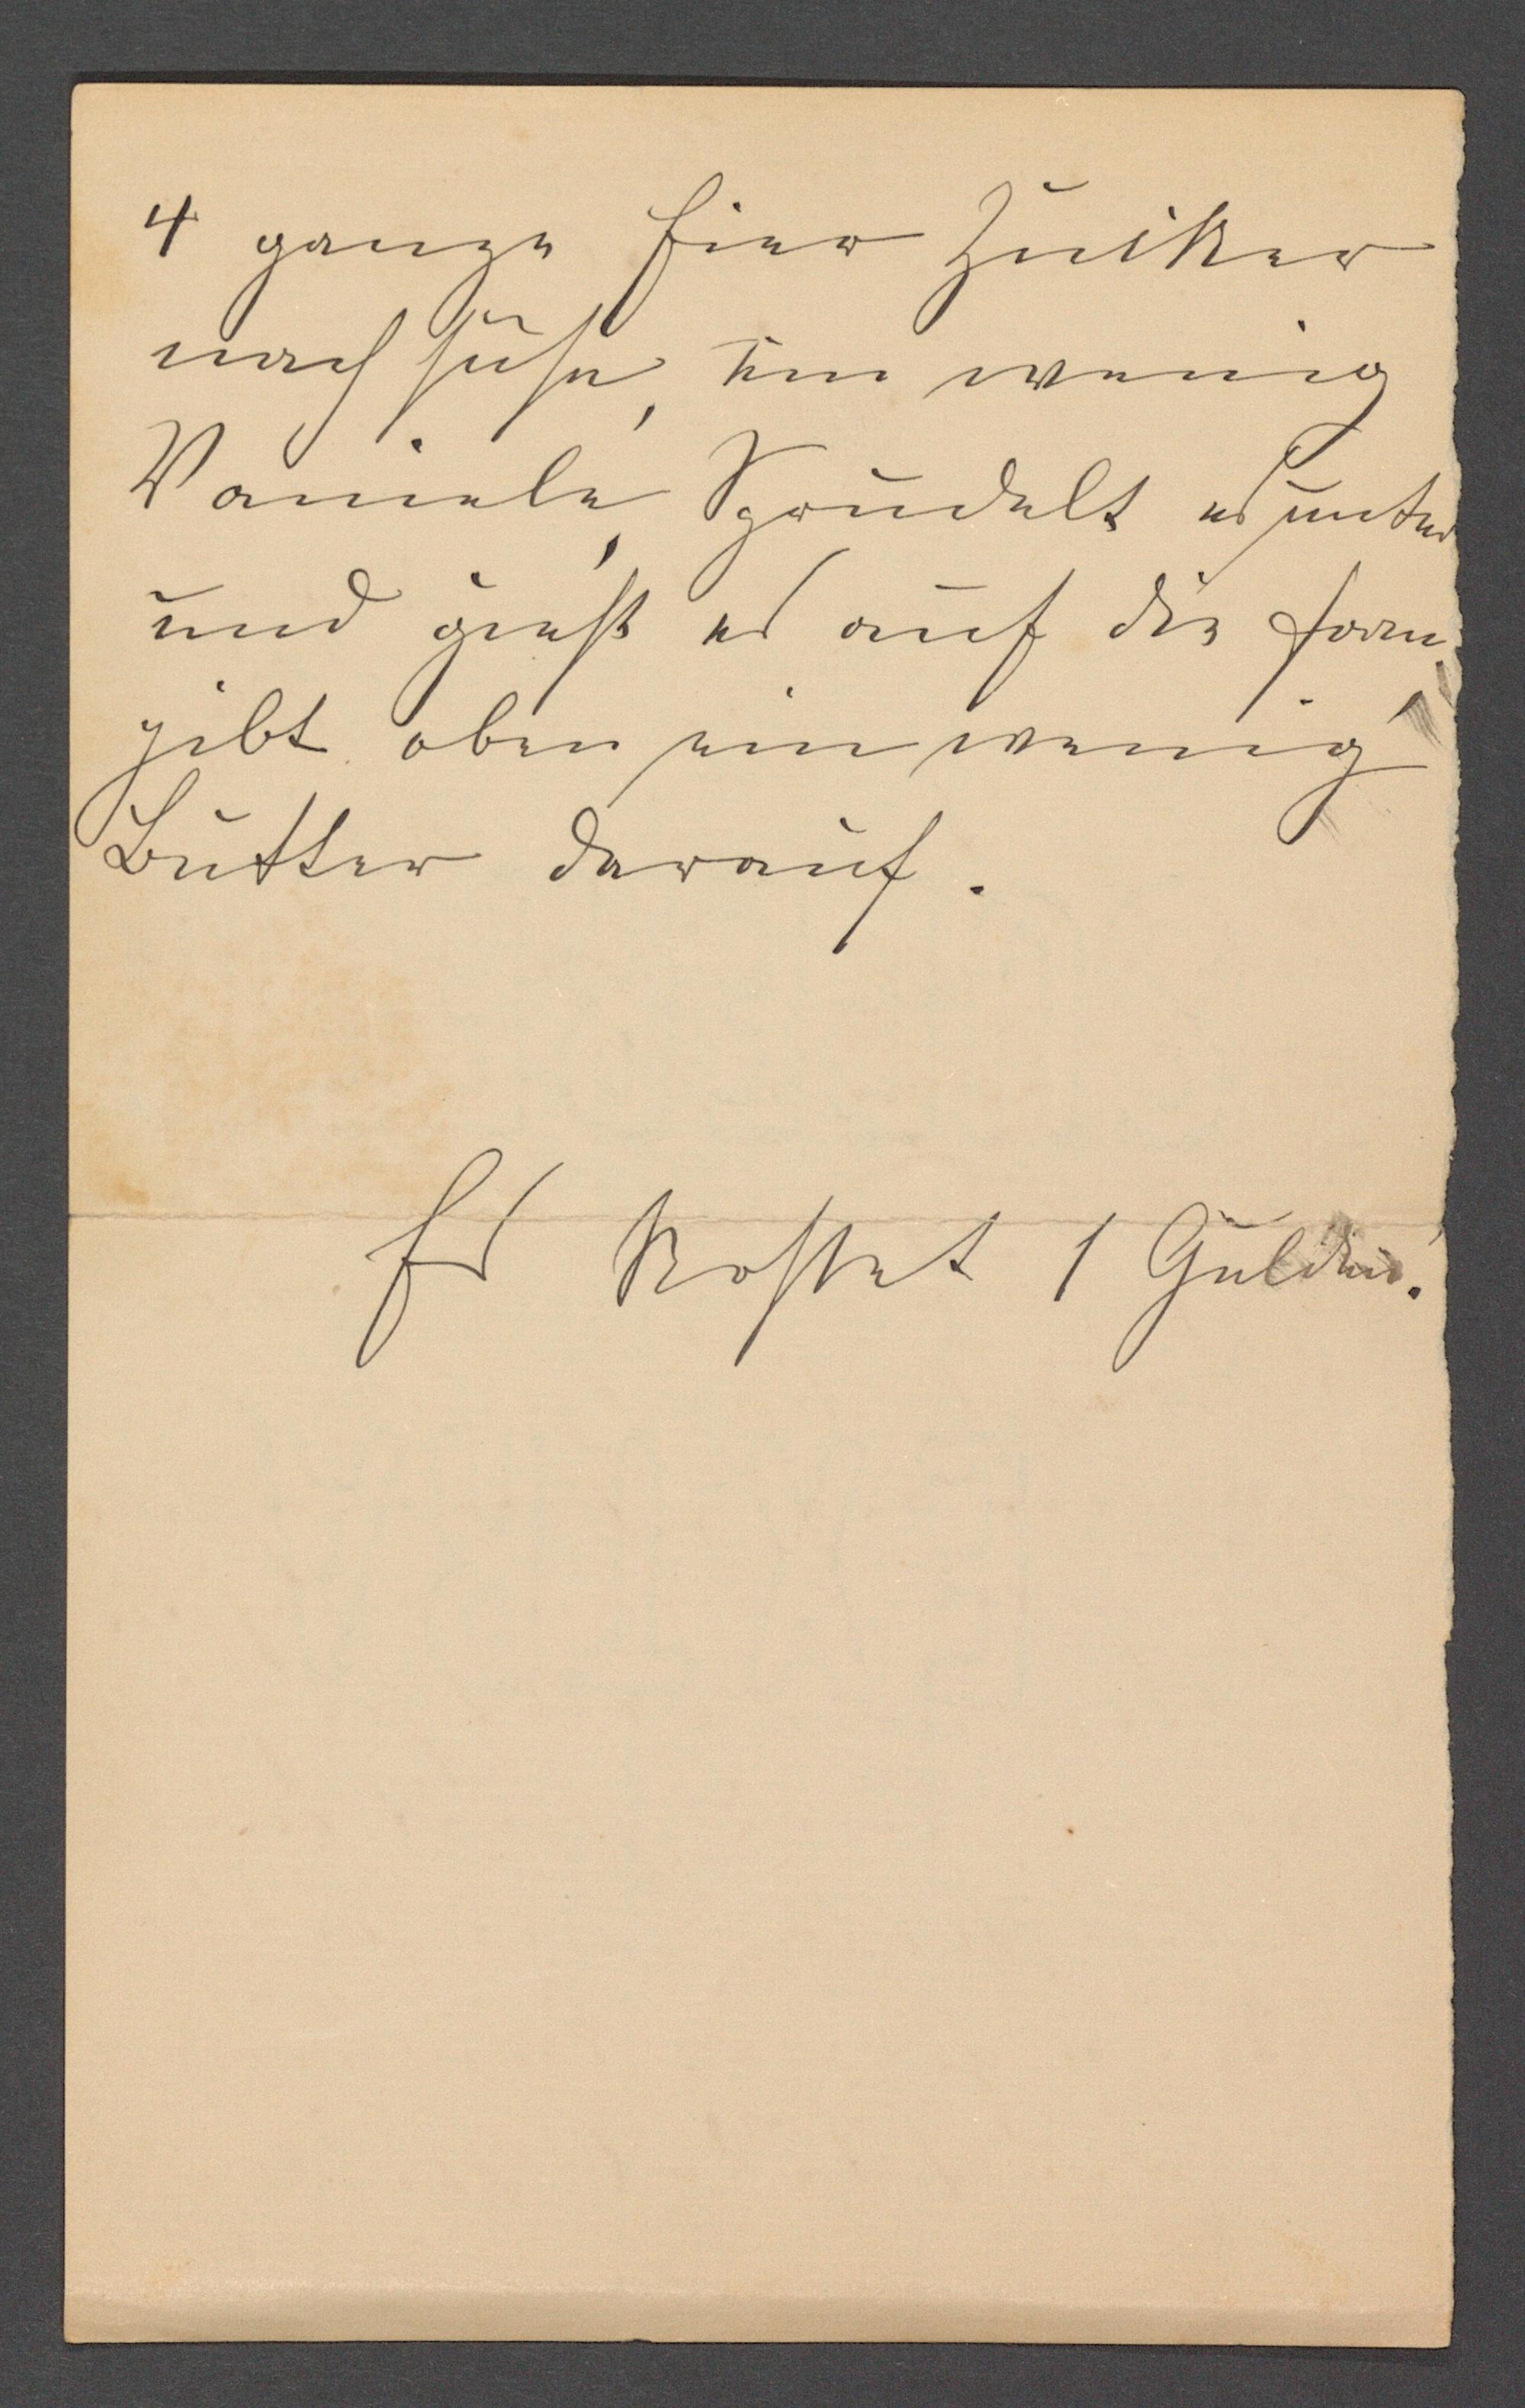 4 ganze Eier Zucker
nach süße, ein wenig
Vaniele, Sprudelt es unter
und giest es auf die form,
gibt oben ein wenig
Butter darauf.
Es kostet 1 Gulden.